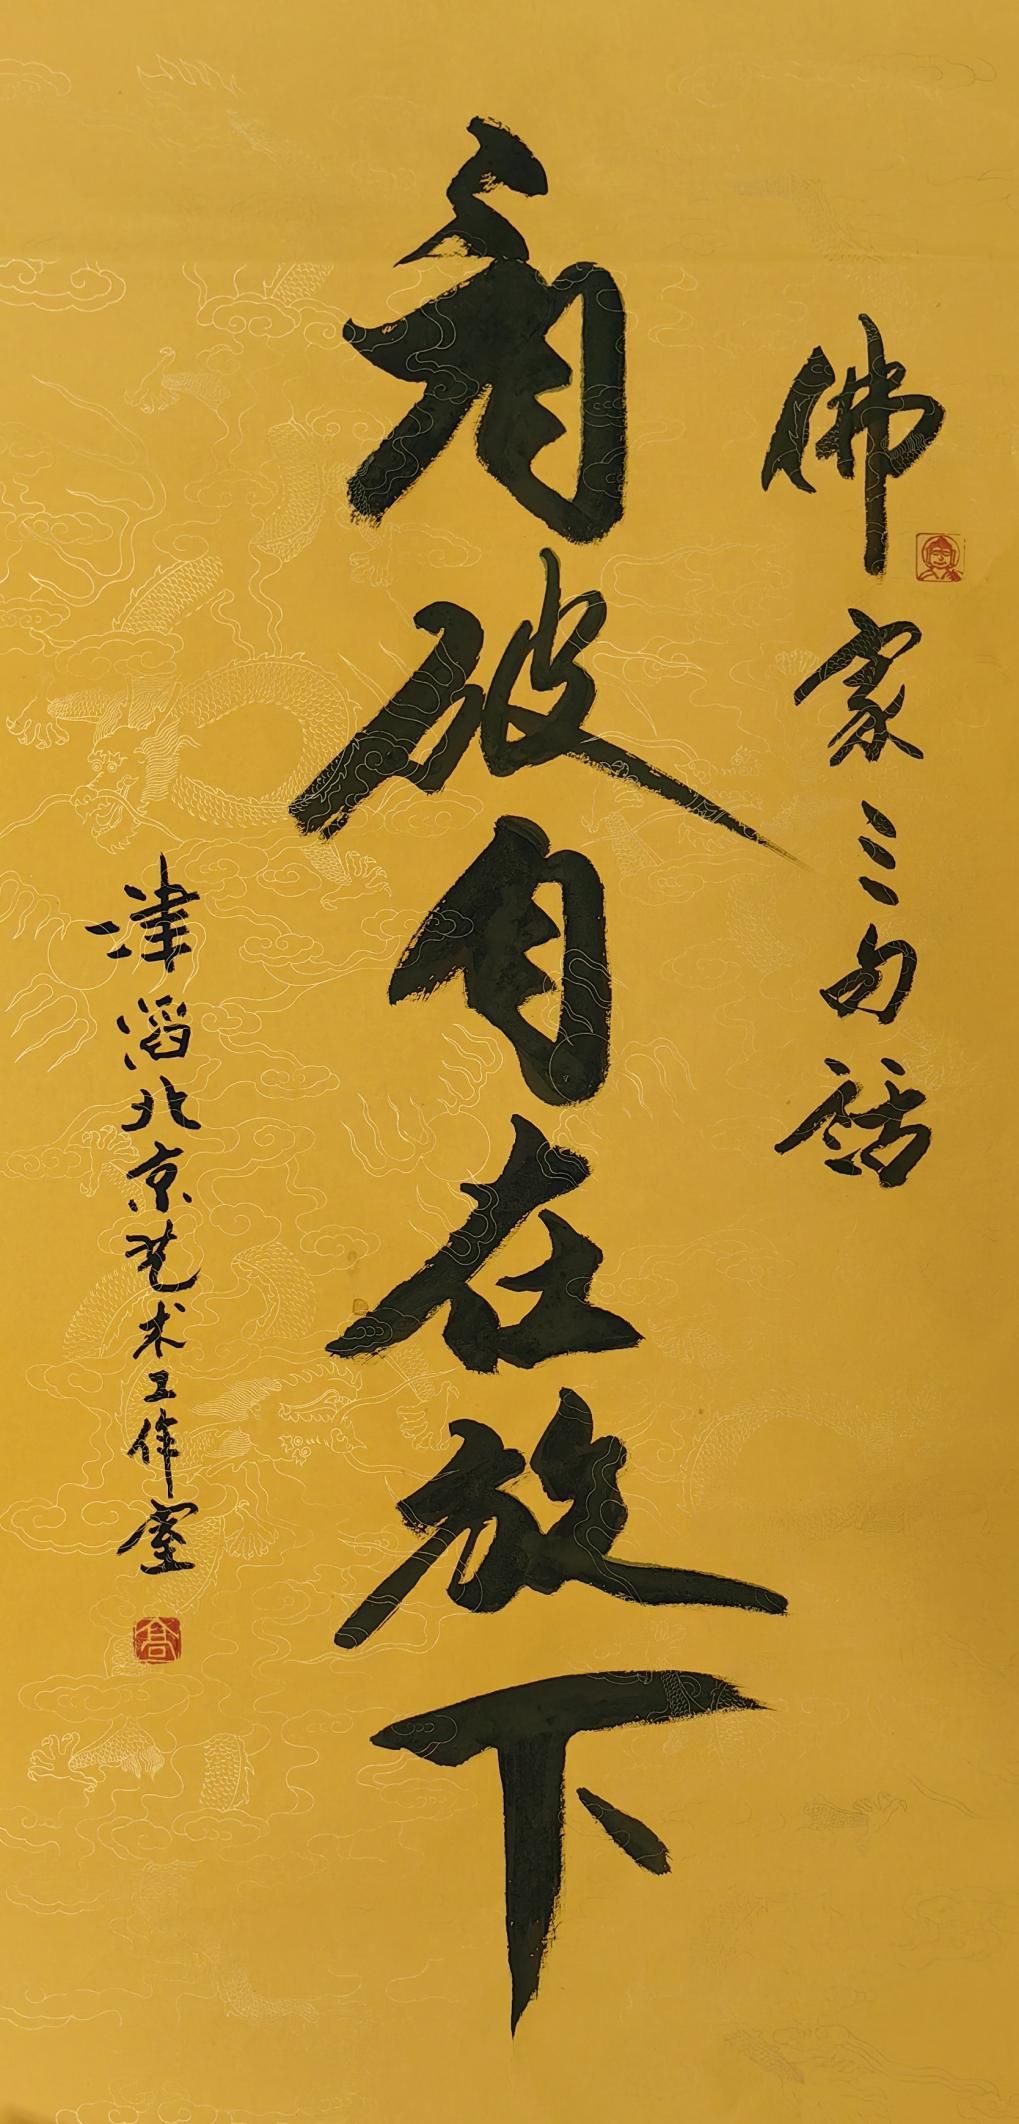 佛家三句话
看破自在放下
津滔北京艺术工作室
高